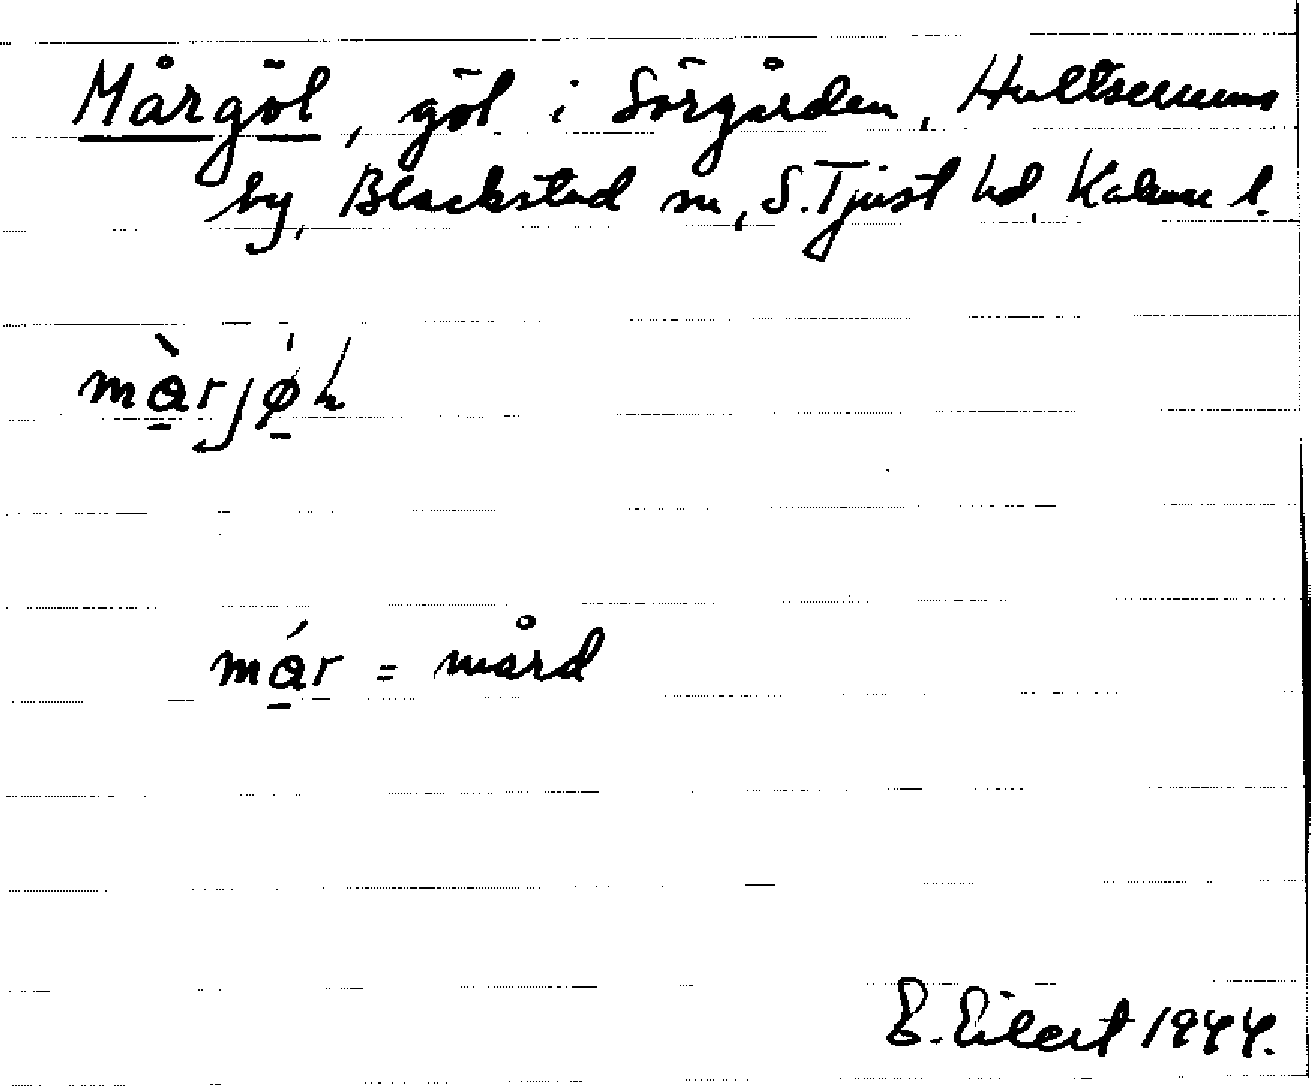 Mårgöl, göl i Sörgården, Hultserums
by, Blackstad sn, S. Tjust hd, Kalmar l.
màrjǿ̱
má̱r = mård
E. Eilert 1944.